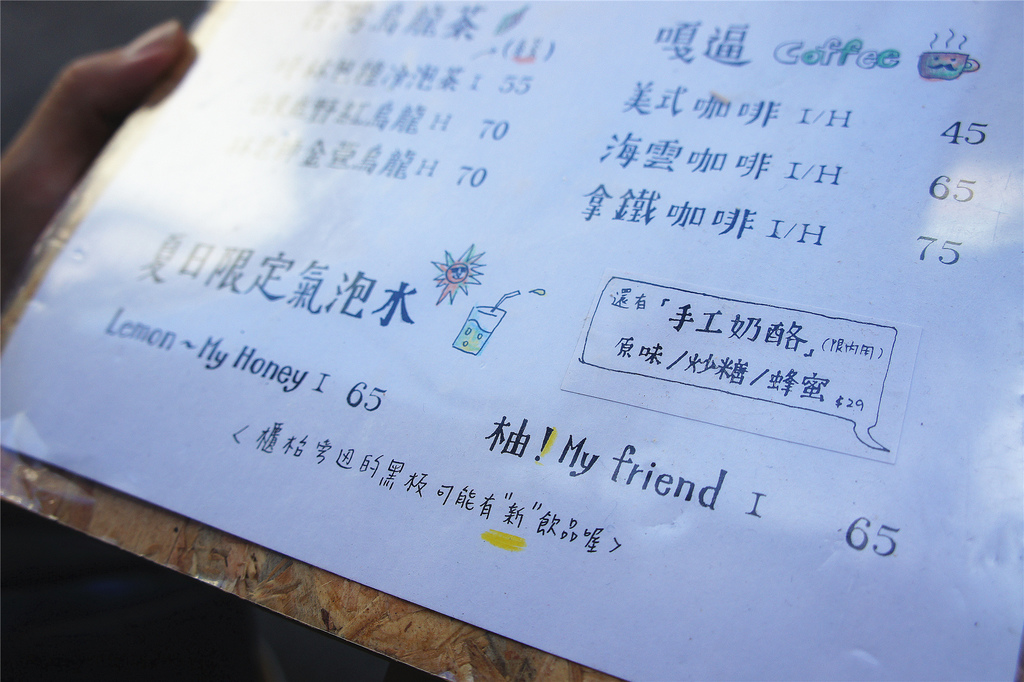 台灣烏龍茶
冷泡茶 I 55
野紅烏龍 H 70
金萱烏龍 H 70
嘎逼 Coffee
美式咖啡 I/H 45
海雲咖啡 I/H 65
拿鐵咖啡 I/H 75
夏日限定氣泡水
Lemon~My Honey I 65
還有「手工奶酪」(限內用)
原味/炒糖/蜂蜜 $29
柚!My friend I 65
<櫃枱旁邊的黑板可能有"新"飲品喔>